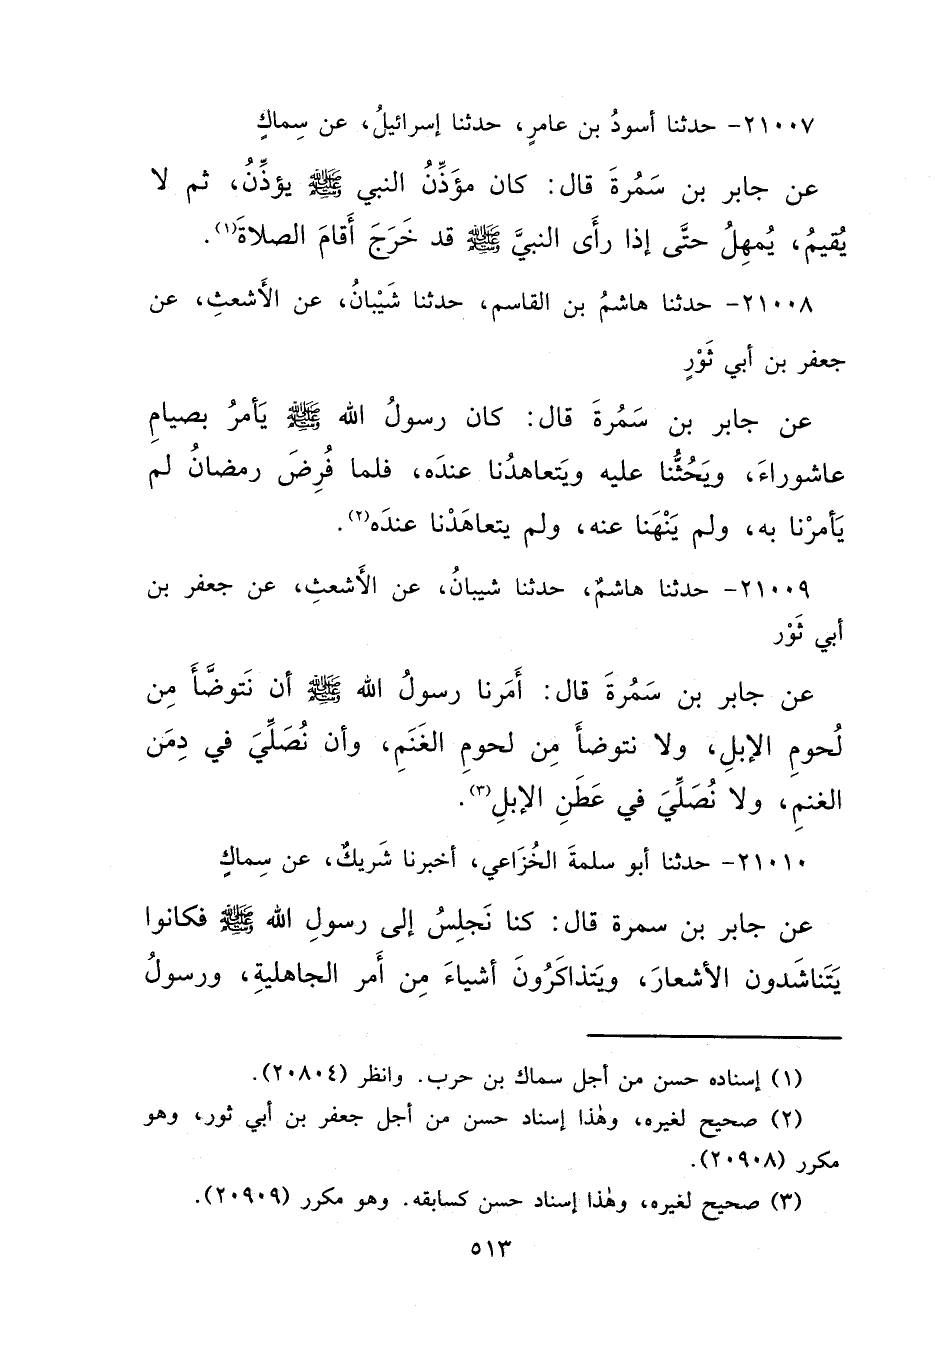 ٢١٠٠٧- حدثنا أسودُ بن عامرٍ، حدثنا إسرائيلُ، عن سِماكٍ
عن جابر بن سَمُرةَ قال: كان مؤَذِّنُ النبي ﷺ يؤذِّنُ، ثم لا
يُقيمُ، يُمهِلُ حتَّى إذا رأَى النبيَّ ﷺ قد خَرَجَ أَقامَ الصلاةَ(١).
٢١٠٠٨- حدثنا هاشمُ بن القاسم، حدثنا شَيْبانُ، عن الأَشعثِ، عن
جعفر بن أبي ثَوْرٍ
عن جابر بن سَمُرةَ قال: كان رسولُ الله ﷺ يَأمرُ بصيامِ
عاشوراءَ، ويَحُثُّنا عليه ويَتعاهدُنا عندَه، فلما فُرِضَ رمضانُ لم
يَأمرْنا به، ولم يَنْهَنا عنه، ولم يتعاهَدْنا عندَه(٢).
٢١٠٠٩- حدثنا هاشمٌ، حدثنا شيبانُ، عن الأَشعثِ، عن جعفر بن
أبي ثَوْر
عن جابر بن سَمُرةَ قال: أَمَرنا رسولُ الله ﷺ أن نَتوضَّأَ مِن
لُحومِ الإبلِ، ولا نتوضأَ مِن لحومِ الغَنَمِ، وأن نُصَلِّيَ في دِمَن
الغنمِ، ولا نُصَلِّيَ في عَطَنِ الإبلِ(٣).
٢١٠١٠- حدثنا أبو سلمةَ الخُزَاعي، أخبرنا شَريكٌ، عن سِماكٍ
عن جابر بن سمرة قال: كنا نَجلِسُ إلى رسولِ الله ﷺ فكانوا
يَتَناشَدون الأشعارَ، ويَتذاكَرُونَ أشياءَ مِن أَمر الجاهليةِ، ورسولُ
(١) إسناده حسن من أجل سماك بن حرب. وانظر (٢٠٨٠٤).
(٢) صحيح لغيره، وهٰذا إسناد حسن من أجل جعفر بن أبي ثور، وهو
مكرر (٢٠٩٠٨).
(٣) صحيح لغيره، وهٰذا إسناد حسن كسابقه. وهو مكرر (٢٠٩٠٩).
٥١٣